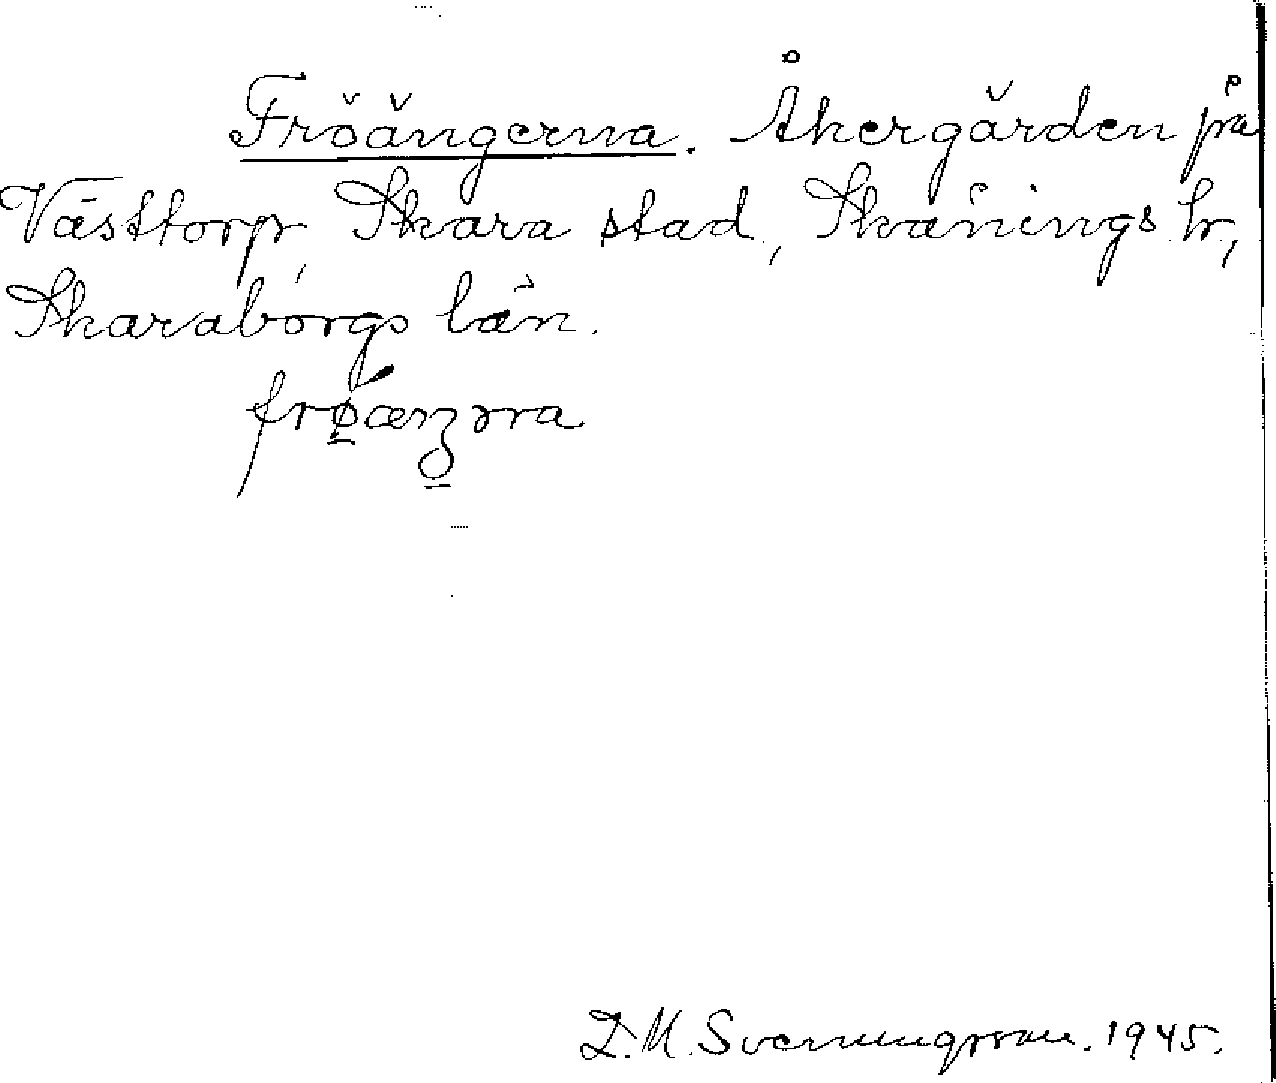 Fröängerna. Åkergärden på
Västtorp, Skara stad, Skånings hr,
Skaraborgs län.
D. M. Svenningsson. 1945.